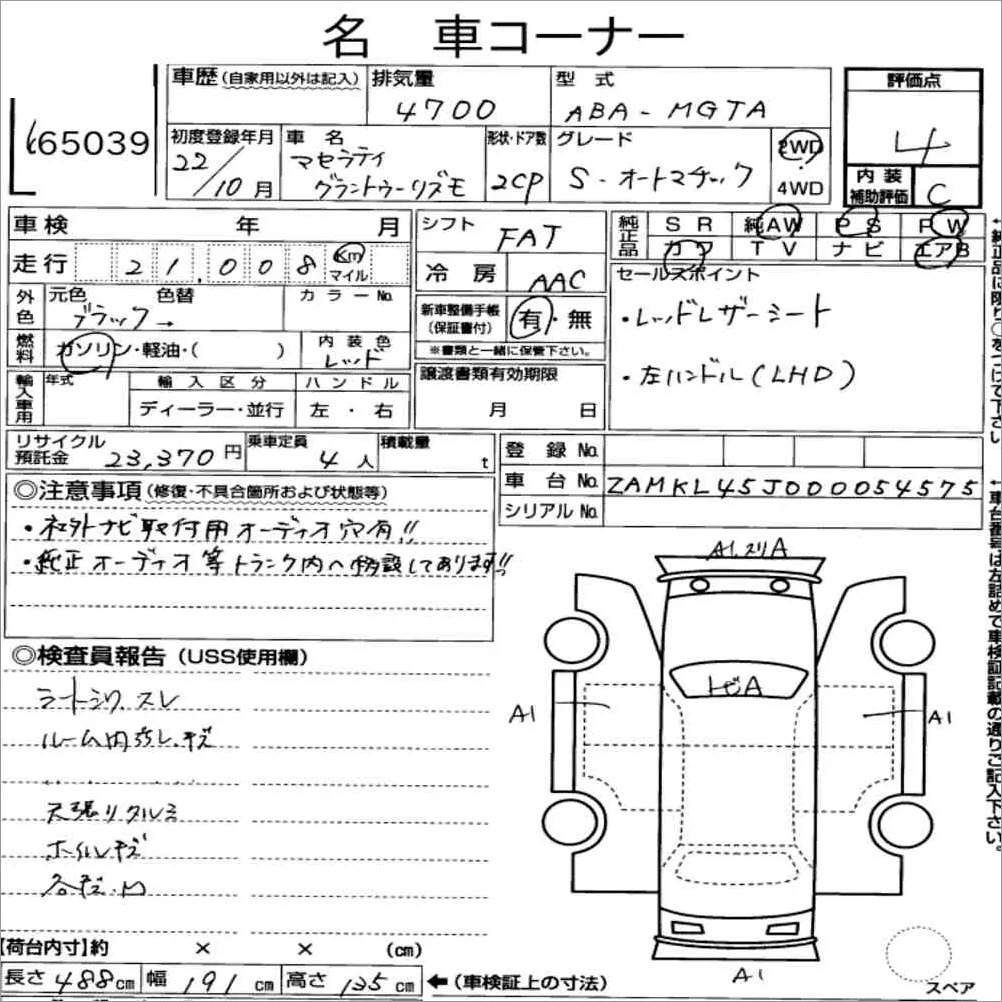 名 車コーナー
665039
車歴 (自家用以外は記入)
排気量 4700
型式 ABA-MGTA
評価点 4
初度登録年月 22/10月
車名 マセラティ グラントゥーリズモ
形状・ドア数 2CP
グレード S-オートマチック
2WD 4WD
内装補助評価 C
車検 年 月
走行 21,008 Km マイル
シフト FAT
冷房 AAC
純正品 SR 純AW PS PW
カワ TV ナビ エアB
外色 元色 色替 カラーNo.
ブラック→
燃料 ガソリン・軽油・( )
内装色 レッド
新車整備手帳(保証書付) 有・無
※書類と一緒に保管下さい。
セールスポイント
・レッドレザーシート
・左ハンドル(LHD)
輸入車用 年式 輸入区分 ハンドル
ディーラー・並行 左・右
譲渡書類有効期限
月 日
リサイクル預託金 23,370円
乗車定員 4人
積載量 t
登録No.
車台No. ZAMKL45J000054575
シリアルNo.
◎注意事項(修復・不具合箇所および状態等)
・社外ナビ取付用オーディオ穴有!!
・純正オーディオ等トランク内へ移設してあります!!
◎検査員報告(USS使用欄)
シートシワ スレ
ルーム内ヨゴレ、キズ
天張りタルミ
ホイルキズ
各キズ、凹
A1,スリA
トビA
A1
A1
A1
スペア
【荷台内寸】約 × × (cm)
長さ 488cm 幅 191cm 高さ 135cm ←(車検証上の寸法)
↑純正品に限り○をつけて下さい
↑車台番号は左詰めで車検証記載の通りご記入下さい。